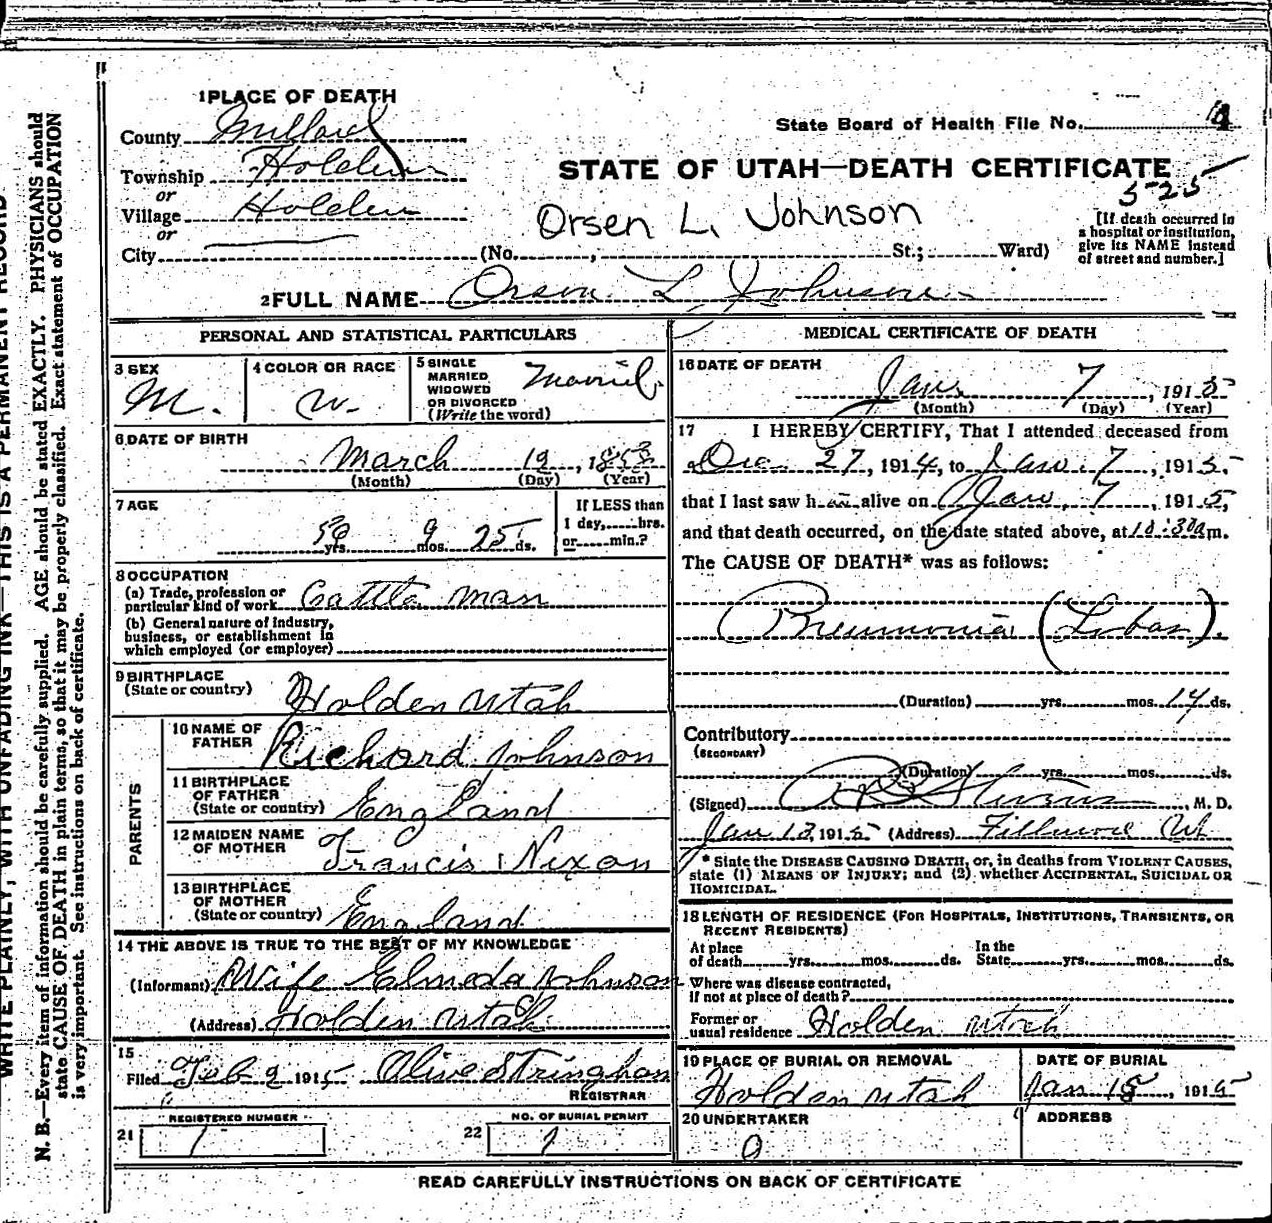 WRITE PLAINLY, WITH UNFADING INK—THIS IS A PERMANENT RECORD
N. B.—Every item of information should be carefully supplied. AGE should be stated EXACTLY. PHYSICIANS should
state CAUSE OF DEATH in plain terms, so that it may be properly classified. Exact statement of OCCUPATION
is very important. See instructions on back of certificate.
1 PLACE OF DEATH
County Millard
Township Holden
or
Village Holden
or
City
State Board of Health File No.
STATE OF UTAH—DEATH CERTIFICATE
5-25
Orsen L. Johnson
(No. , St.; Ward)
[If death occurred in
a hospital or institution,
give its NAME instead
of street and number.]
2 FULL NAME Orson L Johnson
PERSONAL AND STATISTICAL PARTICULARS
3 SEX
M.
4 COLOR OR RACE
W.
5 SINGLE
MARRIED
WIDOWED
OR DIVORCED
(Write the word)
Married
6 DATE OF BIRTH
March 19, 185
(Month) (Day) (Year)
7 AGE
59 yrs. 9 mos. 25 ds.
If LESS than
1 day, hrs.
or min.?
8 OCCUPATION
(a) Trade, profession or
particular kind of work Cattle man
(b) General nature of industry,
business, or establishment in
which employed (or employer)
9 BIRTHPLACE
(State or country)
Holden Utah
PARENTS
10 NAME OF
FATHER
Richard Johnson
11 BIRTHPLACE
OF FATHER
(State or country)
England
12 MAIDEN NAME
OF MOTHER
Francis Nixon
13 BIRTHPLACE
OF MOTHER
(State or country)
England
14 THE ABOVE IS TRUE TO THE BEST OF MY KNOWLEDGE
(Informant) Wife Elmeda Johnson
(Address) Holden Utah
15
Filed Feb 2 1915 Olive Stringham
REGISTRAR
REGISTERED NUMBER
21 1
NO. OF BURIAL PERMIT
22 1
MEDICAL CERTIFICATE OF DEATH
16 DATE OF DEATH
Jan. 7, 1915
(Month) (Day) (Year)
17 I HEREBY CERTIFY, That I attended deceased from
Dec. 27, 1914, to Jan. 7, 1915,
that I last saw h alive on Jan. 7, 1915,
and that death occurred, on the date stated above, at 10:30 a m.
The CAUSE OF DEATH* was as follows:
Pneumonia (Lobar).
(Duration) yrs. mos. 14 ds.
Contributory
(SECONDARY)
(Duration) yrs. mos. ds.
(Signed) Stevens, M. D.
Jan 12, 1915 (Address) Fillmore Ut
* State the DISEASE CAUSING DEATH, or, in deaths from VIOLENT CAUSES,
state (1) MEANS OF INJURY; and (2) whether ACCIDENTAL, SUICIDAL OR
HOMICIDAL.
18 LENGTH OF RESIDENCE (FOR HOSPITALS, INSTITUTIONS, TRANSIENTS, OR
RECENT RESIDENTS)
At place
of death yrs. mos. ds.
In the
State yrs. mos. ds.
Where was disease contracted,
if not at place of death?
Former or
usual residence Holden Utah
19 PLACE OF BURIAL OR REMOVAL
Holden Utah
DATE OF BURIAL
Jan 15, 1915
20 UNDERTAKER
0
ADDRESS
READ CAREFULLY INSTRUCTIONS ON BACK OF CERTIFICATE